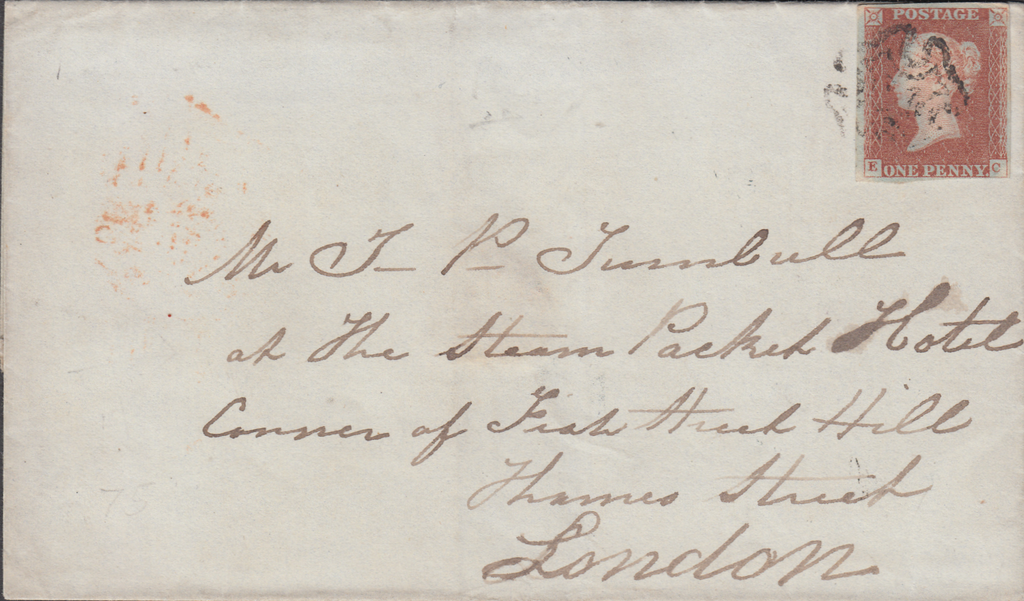 POSTAGE
E ONE PENNY C
Mr T P Turnbull
at The Steam Packet Hotel
Conner of Fish Street Hill
Thames Street
London
75